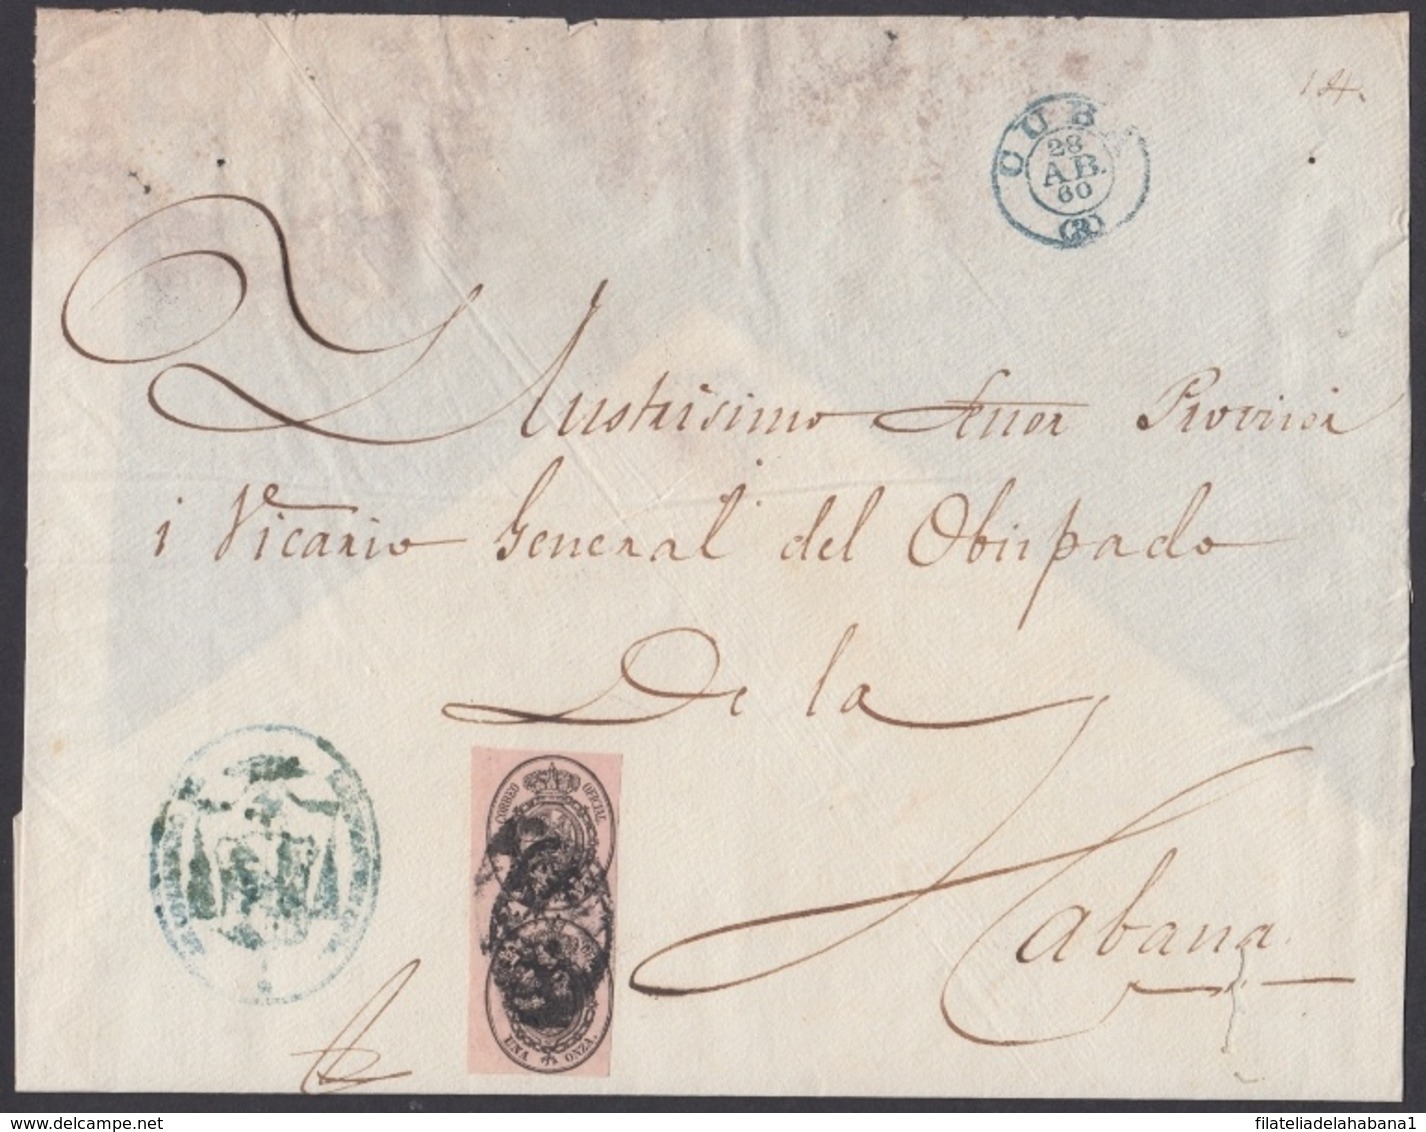 14.
CUBA
28
AB.
60
(3)
Illustrisimo Señor Provisor
i Vicario General del Obispado
De la
Habana.
CORREO OFICIAL
UNA ONZA.
Delcampe.net
filateliadelahabana1